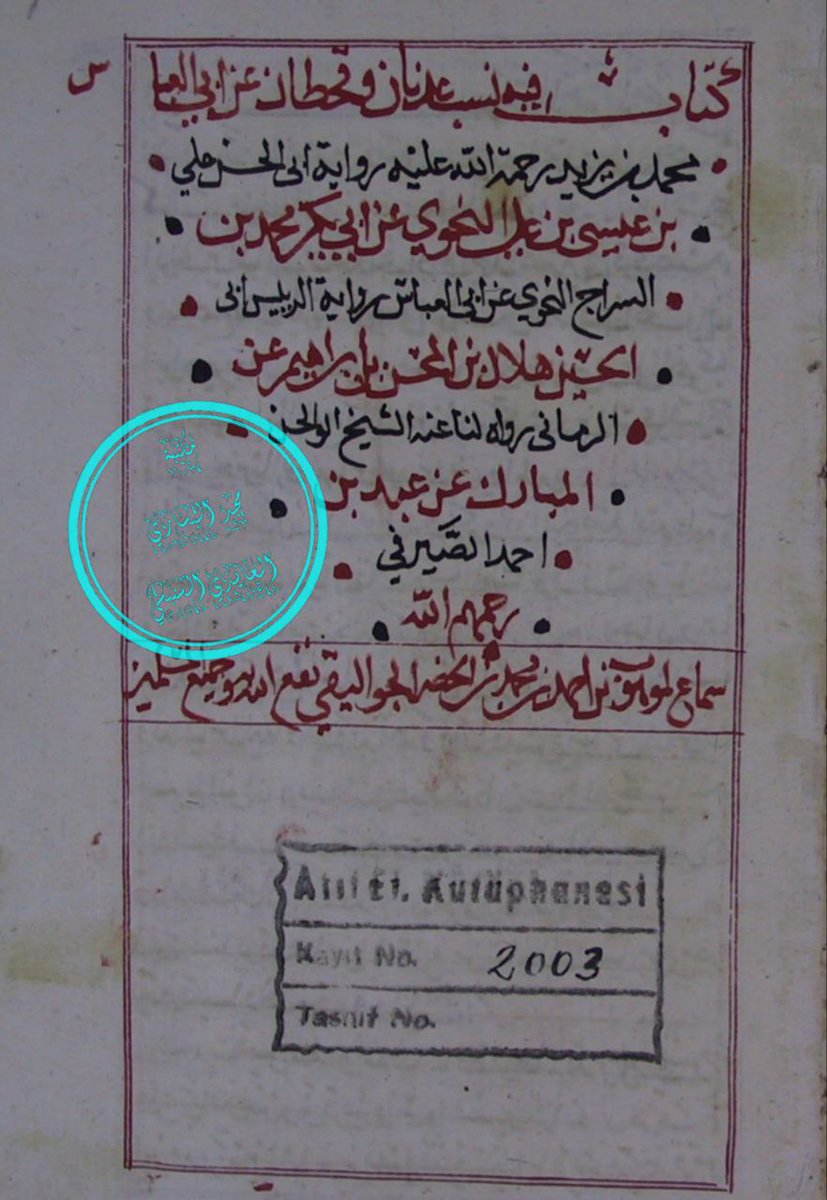 كتاب فيه نسب عدنان وقحطان عن ابي العبا
س
محمد بن يزيد رحمة الله عليه رواية ابى الحسن علي
بن عيسى بن علي النحوي عن ابي بكر محمد بن
السراج النحوي عن ابى العباس رواية الرييس ابى
الحسين هلال بن المحسن بن ابراهيم عن
الرمانى رواه لنا عنه الشيخ ابو الحسن
المبارك عن عبد بن
احمد الصيرفي
رحمهم الله
سماع لموهوب بن احمد بن محمد بن الخضر الجواليقي نفع الله به وجميع المسلمين
Atıf Ef. Kutüphanesi
Kayıt No. 2003
Tasnif No.